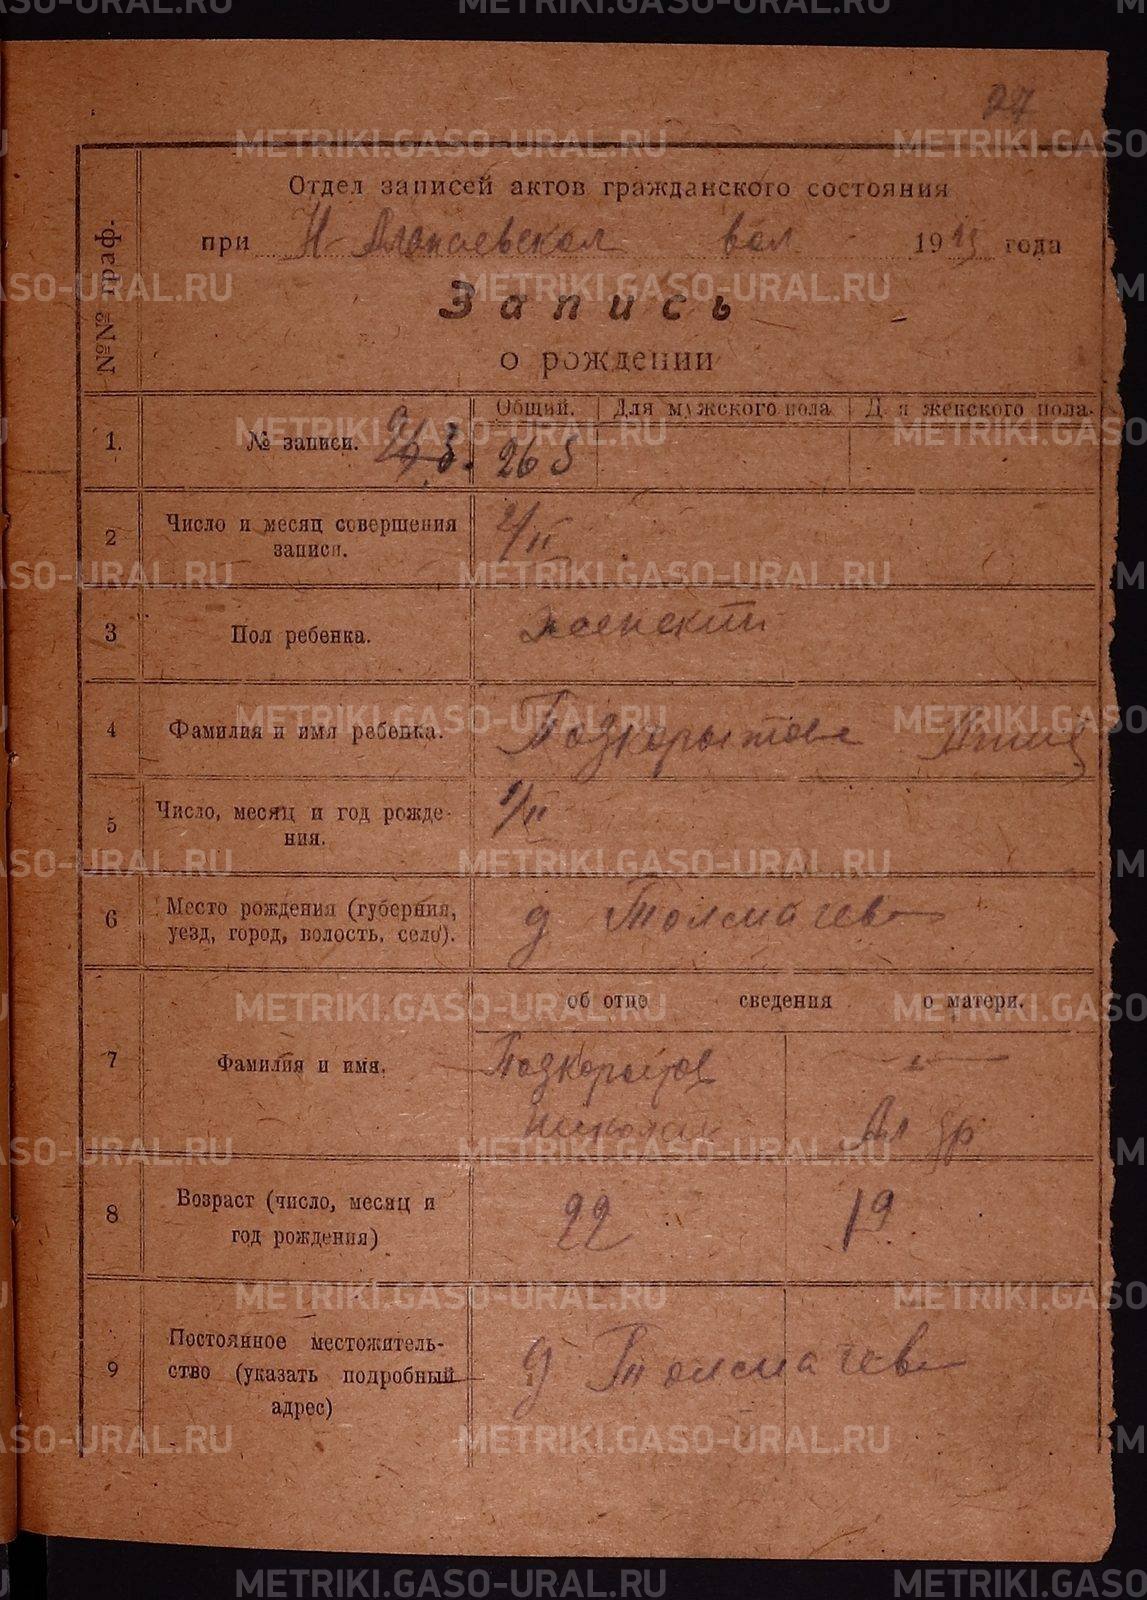 27
Отдел записей актов гражданского состояния
при Н Алапаевской вол 1923 года
№№ граф.
Запись
о рождении
Общий. Для мужского пола Для женского пола.
1. № записи. 265
2 Число и месяц совершения записи. 2/II
3 Пол ребенка. женский
4 Фамилия и имя ребенка. Подкорытова Анна
5 Число, месяц и год рождения. 1/II
6 Место рождения (губерния, уезд, город, волость, село). д Толмачева
об отце сведения о матери.
7 Фамилия и имя. Подкорытов
Николай
8 Возраст (число, месяц и год рождения) 22 19
9 Постоянное местожительство (указать подробный адрес) д Толмачева
METRIKI.GASO-URAL.RU